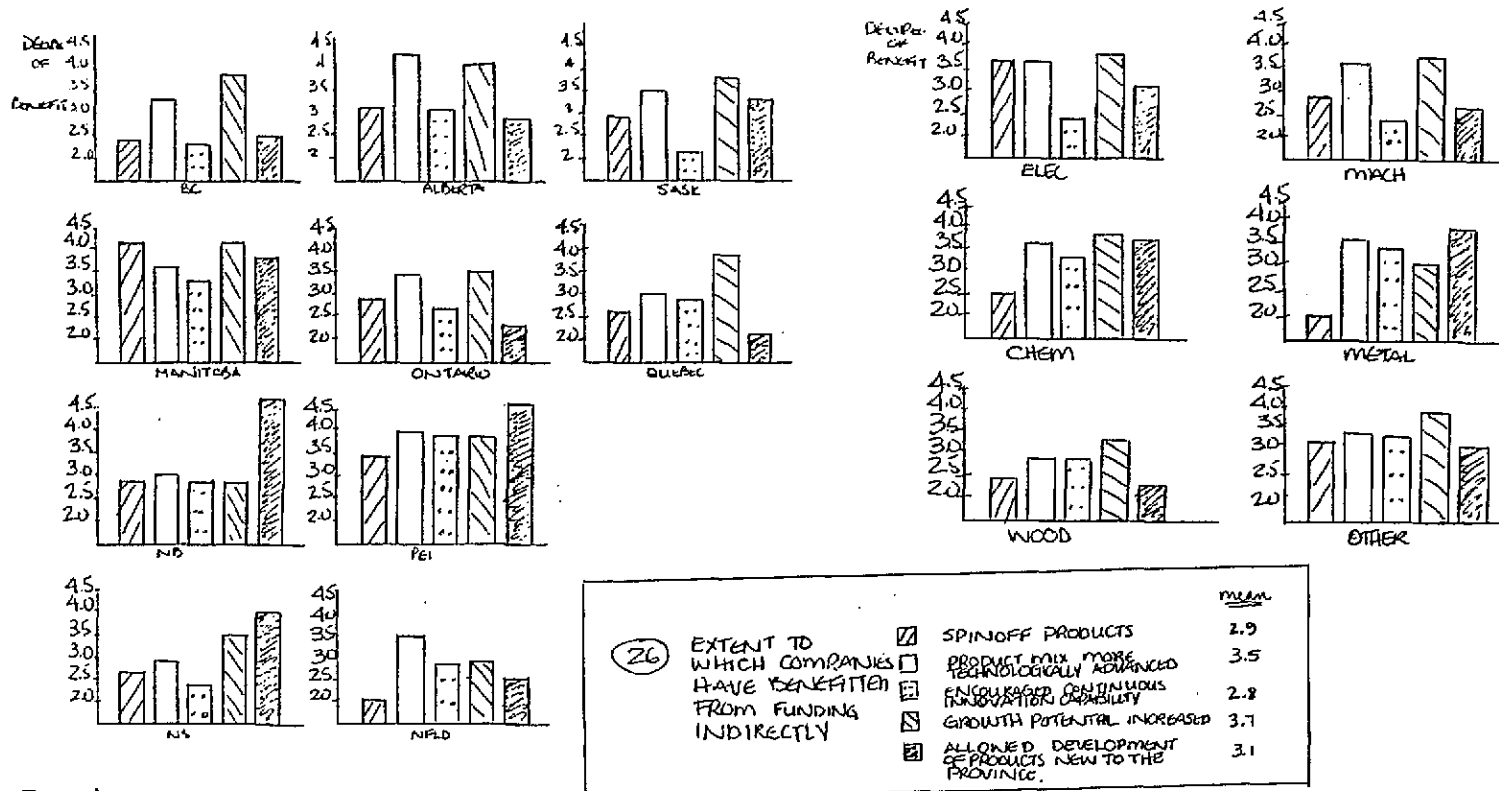 DEGREE OF BENEFIT
4.5
4.0
3.5
3.0
2.5
2.0
BC
4.5
4
3.5
3
2.5
2
ALBERTA
4.5
4
3.5
3
2.5
2
SASK
DEGREE OF BENEFIT
4.5
4.0
3.5
3.0
2.5
2.0
ELEC
4.5
4.0
3.5
3.0
2.5
2.0
MACH
4.5
4.0
3.5
3.0
2.5
2.0
MANITOBA
4.5
4.0
3.5
3.0
2.5
2.0
ONTARIO
4.0
3.5
3.0
2.5
2.0
QUEBEC
4.5
4.0
3.5
3.0
2.5
2.0
CHEM
4.5
4.0
3.5
3.0
2.5
2.0
METAL
4.5
4.0
3.5
3.0
2.5
2.0
NB
4.5
4.0
3.5
3.0
2.5
2.0
PEI
4.5
4.0
3.5
3.0
2.5
2.0
WOOD
4.5
4.0
3.5
3.0
2.5
2.0
OTHER
4.5
4.0
3.5
3.0
2.5
2.0
NS
4.5
4.0
3.5
3.0
2.5
2.0
NFLD
26 EXTENT TO
WHICH COMPANIES
HAVE BENEFITTED
FROM FUNDING
INDIRECTLY
mean
SPINOFF PRODUCTS 2.9
PRODUCT MIX MORE
TECHNOLOGICALLY ADVANCED 3.5
ENCOURAGED CONTINUOUS
INNOVATION CAPABILITY 2.8
GROWTH POTENTIAL INCREASED 3.7
ALLOWED DEVELOPMENT
OF PRODUCTS NEW TO THE
PROVINCE. 3.1